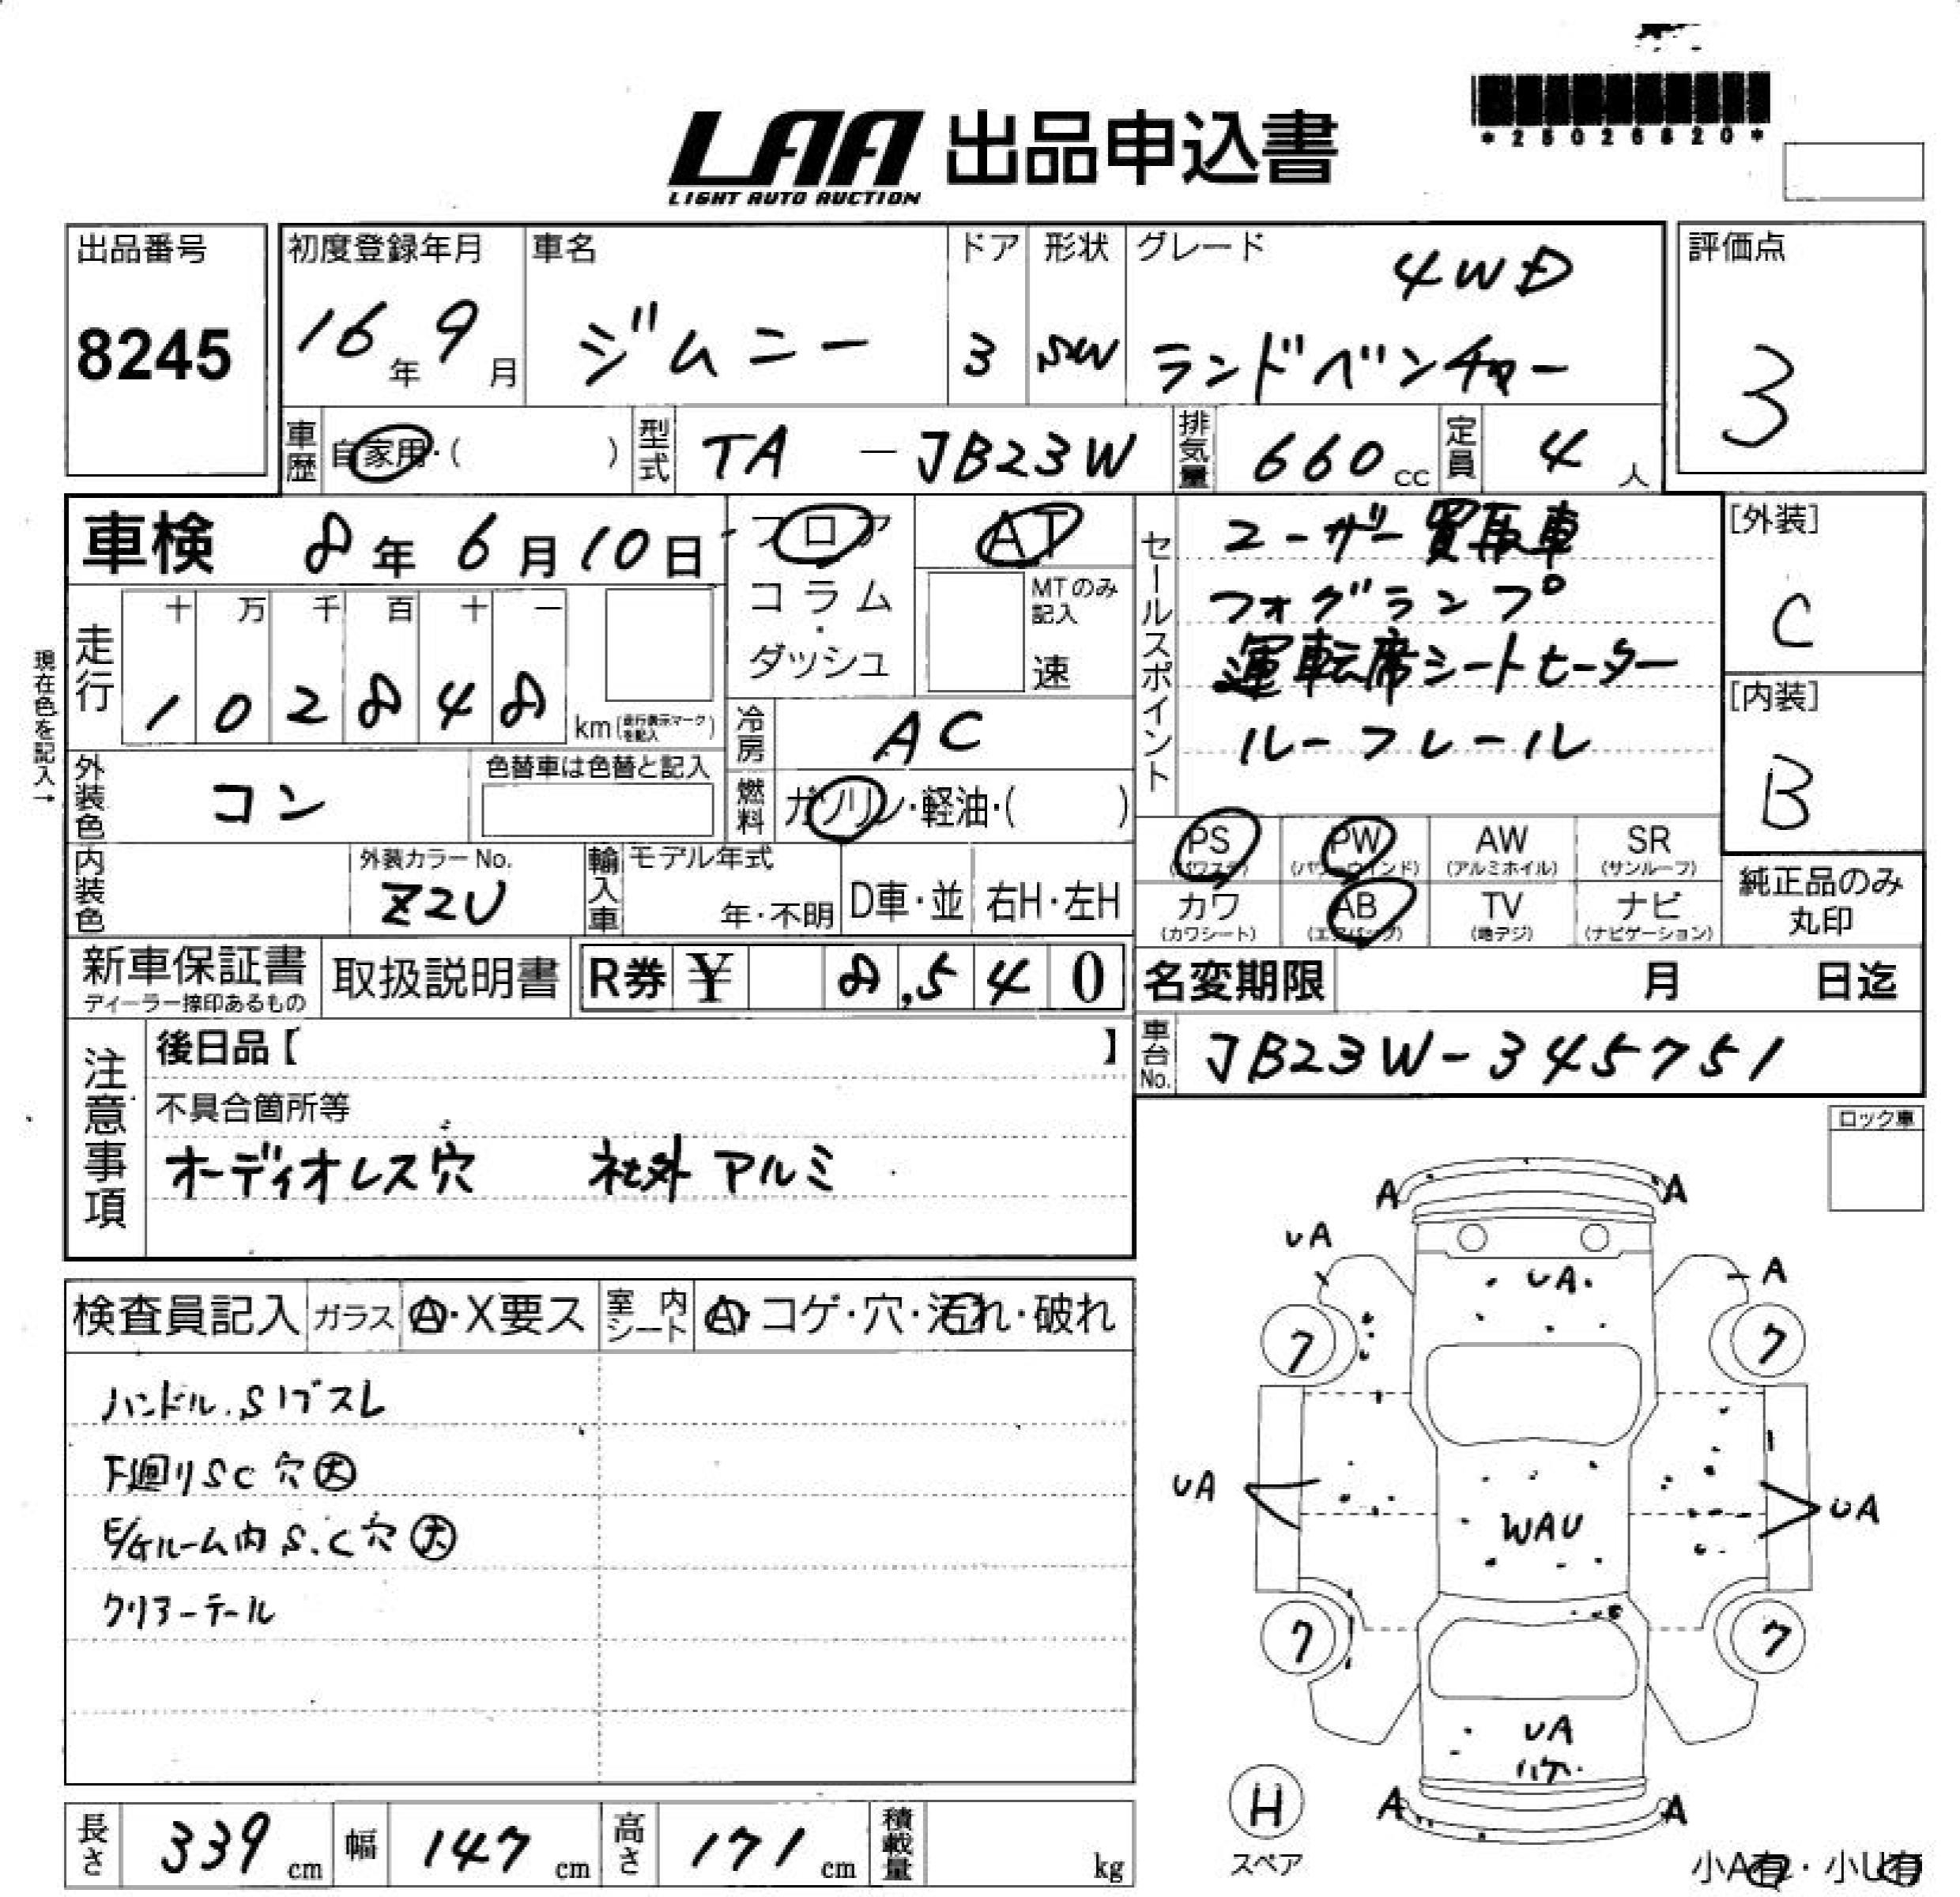 *25026820*
LAA 出品申込書
LIGHT AUTO AUCTION
出品番号
8245
初度登録年月
16年 9月
車名
ジムニー
ドア
3
形状
SW
グレード
4WD
ランドベンチャー
評価点
3
車歴 自家用・( )
型式 TA - JB23W
排気量 660cc
定員 4人
車検 8年 6月 10日
現在色を記入→
走行
十 万 千 百 十 一
1 0 2 8 4 8 km(走行表示マークを記入)
フロア
コラム
・
ダッシュ
AT
MTのみ記入
速
冷房 AC
燃料 ガソリン・軽油・( )
セールスポイント
ユーザー買取車
フォグランプ
運転席シートヒーター
ルーフレール
[外装]
C
[内装]
B
外装色 コン
色替車は色替と記入
内装色
外装カラーNo.
Z2U
輸入車 モデル年式
年・不明
D車・並
右H・左H
PS (パワステ)
PW (パワーウインド)
AW (アルミホイル)
SR (サンルーフ)
カワ (カワシート)
AB (エアバッグ)
TV (地デジ)
ナビ (ナビゲーション)
純正品のみ
丸印
新車保証書
ディーラー捺印あるもの
取扱説明書
R券 ¥ 8,540
名変期限 月 日迄
車台No. JB23W-345751
注意事項
後日品【 】
不具合箇所等
オーディオレス穴 社外アルミ
ロック車
検査員記入
ガラス A・X要ス
室内シート A・コゲ・穴・汚れ・破れ
ハンドル.Sリブスレ
下廻りSC穴大
E/Gルーム内S.C穴大
クリアーテール
A A
UA UA A
ワ ワ
UA WAU UA
ワ ワ
UA
ハケ
A A
H
スペア
小A有・小U有
長さ 339cm
幅 147cm
高さ 171cm
積載量 kg